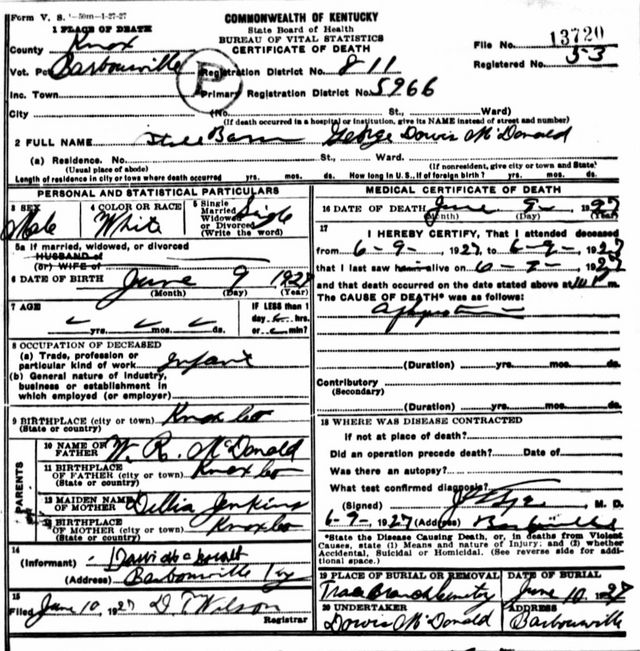 Form V. S. 1-50m-1-27-27
COMMONWEALTH OF KENTUCKY
State Board of Health
BUREAU OF VITAL STATISTICS
CERTIFICATE OF DEATH
1 PLACE OF DEATH
County Knox
File No. 13720
Registered No. 53
Vot. Pct. Barbourville Registration District No. 811
Inc. Town P Primary Registration District No. 5966
City (No. St., Ward)
(If death occurred in a hospital or institution, give its NAME instead of street and number)
2 FULL NAME Still Born George Dowis McDonald
(a) Residence. No. St., Ward.
(Usual place of abode) (If nonresident, give city or town and State)
Length of residence in city or town where death occurred yrs. mos. ds. How long in U. S., if of foreign birth? yrs. mos. ds.
PERSONAL AND STATISTICAL PARTICULARS
3 SEX Male
4 COLOR OR RACE White
5 Single Married Widowed or Divorced (Write the word) Single
5a If married, widowed, or divorced
HUSBAND of
(or) WIFE of
6 DATE OF BIRTH June 9 1927
(Month) (Day) (Year)
7 AGE
yrs. mos. ds.
IF LESS than 1
day hrs.
or min?
8 OCCUPATION OF DECEASED
(a) Trade, profession or
particular kind of work Infant
(b) General nature of industry,
business or establishment in
which employed (or employer)
9 BIRTHPLACE (city or town) Knox Co
(State or country)
PARENTS
10 NAME OF FATHER W. R. McDonald
11 BIRTHPLACE OF FATHER (city or town) Knox Co
(State or country)
12 MAIDEN NAME OF MOTHER Dellia Jenkins
13 BIRTHPLACE OF MOTHER (city or town) Knox Co
(State or country)
14
(Informant)
(Address) Barbourville Ky
15
Filed June 10, 1927 D. T. Wilson
Registrar
MEDICAL CERTIFICATE OF DEATH
16 DATE OF DEATH June 9 1927
(Month) (Day) (Year)
17
I HEREBY CERTIFY, That I attended deceased
from 6-9-, 1927, to 6-9-, 1927
that I last saw him alive on 6-9-, 1927
and that death occurred on the date stated above at m.
The CAUSE OF DEATH* was as follows:
(Duration) yrs. mos. ds.
Contributory
(Secondary)
(Duration) yrs. mos. ds.
18 WHERE WAS DISEASE CONTRACTED
If not at place of death?
Did an operation precede death? Date of
Was there an autopsy?
What test confirmed diagnosis?
(Signed) M. D.
6-9-, 1927 (Address) Barbourville
*State the Disease Causing Death, or, in deaths from Violent
Causes, state (1) Means and nature of Injury; and (2) whether
Accidental, Suicidal or Homicidal. (See reverse side for addi-
tional space.)
19 PLACE OF BURIAL OR REMOVAL
Trace Branch Cemetery
DATE OF BURIAL
June 10, 1927
20 UNDERTAKER
Dowis McDonald
ADDRESS
Barbourville